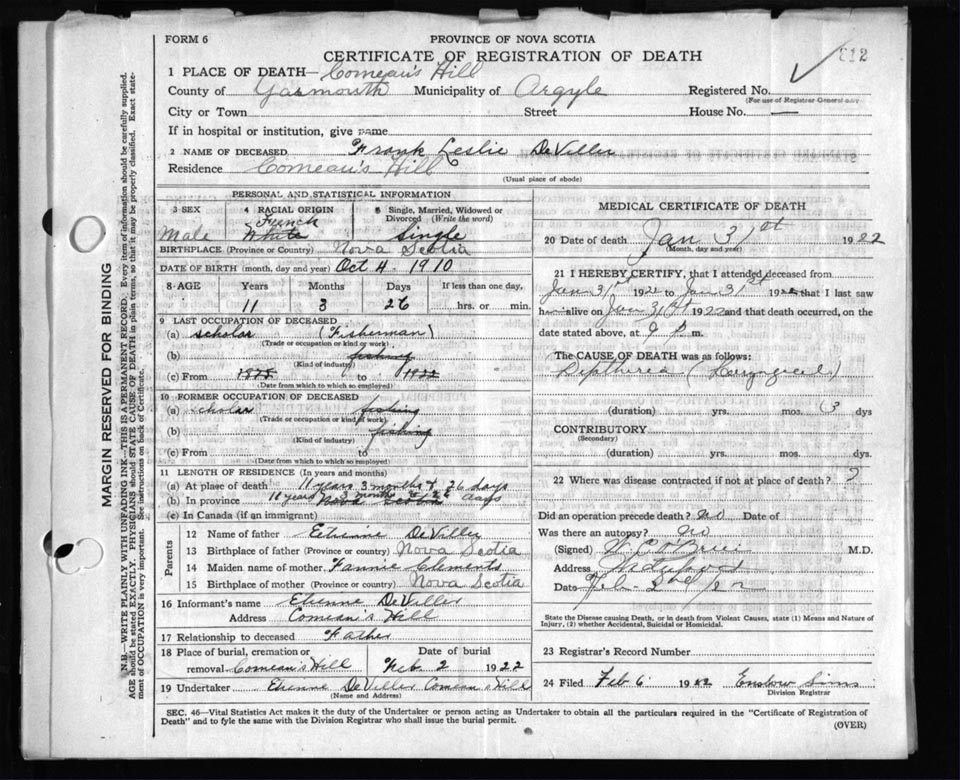 FORM 6
PROVINCE OF NOVA SCOTIA
CERTIFICATE OF REGISTRATION OF DEATH
1 PLACE OF DEATH— Comeau's Hill
County of Yarmouth Municipality of Argyle Registered No.
(For use of Registrar General only)
City or Town Street House No. —
If in hospital or institution, give name
2 NAME OF DECEASED Frank Leslie DeViller
Residence Comeau's Hill
(Usual place of abode)
PERSONAL AND STATISTICAL INFORMATION
3 SEX 4 RACIAL ORIGIN 5 Single, Married, Widowed or Divorced (Write the word)
French
Male White Single
BIRTHPLACE (Province or Country) Nova Scotia
DATE OF BIRTH (month, day and year) Oct 4. 1910
8 AGE Years Months Days If less than one day,
11 3 26 hrs. or min.
9 LAST OCCUPATION OF DECEASED
(a) scholar (Fisherman)
(Trade or occupation or kind of work)
(b) fishing
(Kind of industry)
(c) From to 1922
(Date from which to which so employed)
10 FORMER OCCUPATION OF DECEASED
(a) scholar fishing
(Trade or occupation or kind of work)
(b) fishing
(Kind of industry)
(c) From to
(Date from which to which so employed)
11 LENGTH OF RESIDENCE (In years and months)
(a) At place of death 11 years 3 months & 26 days
(b) In province 11 years 3 months & 26 days
Nova Scotia
(c) In Canada (if an immigrant)
Parents
12 Name of father Etienne DeViller
13 Birthplace of father (Province or country) Nova Scotia
14 Maiden name of mother Fannie Clements
15 Birthplace of mother (Province or country) Nova Scotia
16 Informant's name Etienne DeViller
Address Comeau's Hill
17 Relationship to deceased Father
18 Place of burial, cremation or removal Comeau's Hill
Date of burial Feb. 2 1922
19 Undertaker Etienne DeViller Comeau's Hill
(Name and Address)
MEDICAL CERTIFICATE OF DEATH
20 Date of death Jan 31st 1922
(Month, day and year)
21 I HEREBY CERTIFY, that I attended deceased from
Jan 31st 1922 to Jan 31st 1922 that I last saw
h alive on Jan 31st 1922 and that death occurred, on the
date stated above, at 9 P. m.
The CAUSE OF DEATH was as follows:
Diptheria (Laryngeal)
(duration) yrs. mos. 3 days
CONTRIBUTORY
(Secondary)
(duration) yrs. mos. days
22 Where was disease contracted if not at place of death? ?
Did an operation precede death? no Date of
Was there an autopsy? no
(Signed) M.D.
Address
Date Feb. 2nd /22
State the Disease causing Death, or in death from Violent Causes, state (1) Means and Nature of Injury, (2) whether Accidental, Suicidal or Homicidal.
23 Registrar's Record Number
24 Filed Feb 6 1922 Enslow Sims
Division Registrar
SEC. 46—Vital Statistics Act makes it the duty of the Undertaker or person acting as Undertaker to obtain all the particulars required in the "Certificate of Registration of
Death" and to fyle the same with the Division Registrar who shall issue the burial permit.
(OVER)
MARGIN RESERVED FOR BINDING
N.B.—WRITE PLAINLY WITH UNFADING INK—THIS IS A PERMANENT RECORD. Every item of information should be carefully supplied.
AGE should be stated EXACTLY. PHYSICIANS should STATE CAUSE OF DEATH in plain terms, so that it may be properly classified. Exact statement of OCCUPATION is very important. See instructions on back of Certificate.